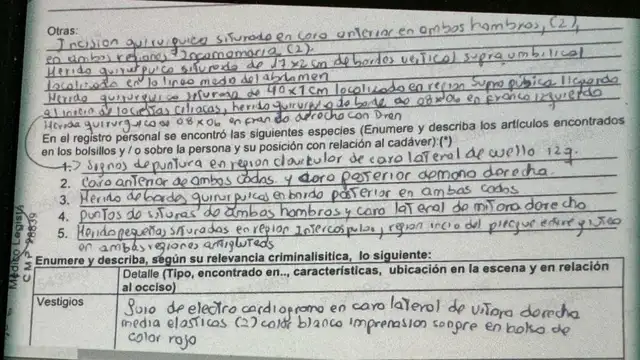 Otras:
Incision quirurquico siturado en cara anterior en ambos hombros, (2),
en ambos regiones Inframamaria (2).
Herido quirurquico siturado de 17x2 cm de bordes vertical supraumbilical
localizado en la linea media del abdomen
Herido quirurquico siturado de 40x1cm localizado en region suprapubica Izquierda
herido quirurgico de borde de 08x06 en franco izquierdo
Herida quirurgica de 08x06 en franco derecho con Dren
En el registro personal se encontró las siguientes especies (Enumere y describa los artículos encontrados
en los bolsillos y / o sobre la persona y su posición con relación al cadáver):(*)
1. Signos de puntura en region clavicular de cara lateral de cuello izq.
2. Cara anterior de ambos codos y cara posterior de mano derecha.
3. Herido de bordes quirurquicos en borde posterior en ambos codos
4. puntos de situras de ambos hombros y cara lateral de derecho
5. Herido pequeñas situradas en region Interescapular, region inicio del pliegue
en ambas regiones
Enumere y describa, según su relevancia criminalisitica, lo siguiente:
Detalle (Tipo, encontrado en.., características, ubicación en la escena y en relación
al occiso)
Vestigios
de electro cardiogramo en cara lateral de derecha
media elasticas (2) color blanco impronasion sangre en bolsa de
color rojo
Médico Legista
C M P 28839